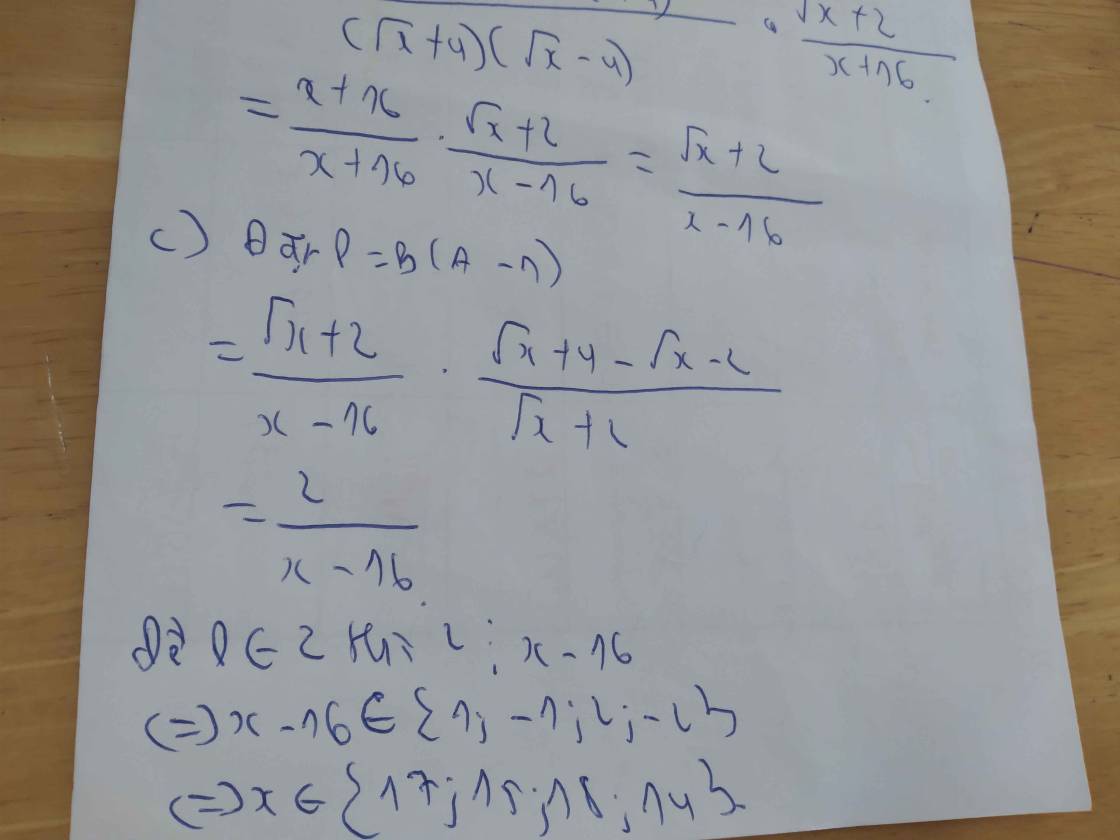 (√x + 4)(√x - 4) . (√x + 2)/(x + 16)
= (x + 16)/(x + 16) . (√x + 2)/(x - 16) = (√x + 2)/(x - 16)
c) Đặt P = B(A - 1)
= (√x + 2)/(x - 16) . (√x + 4 - √x - 2)/(√x + 2)
= 2/(x - 16)
Để P ∈ Z thì 2 ⋮ x - 16
(=) x - 16 ∈ {1; -1; 2; -2}
(=) x ∈ {17; 15; 18; 14}